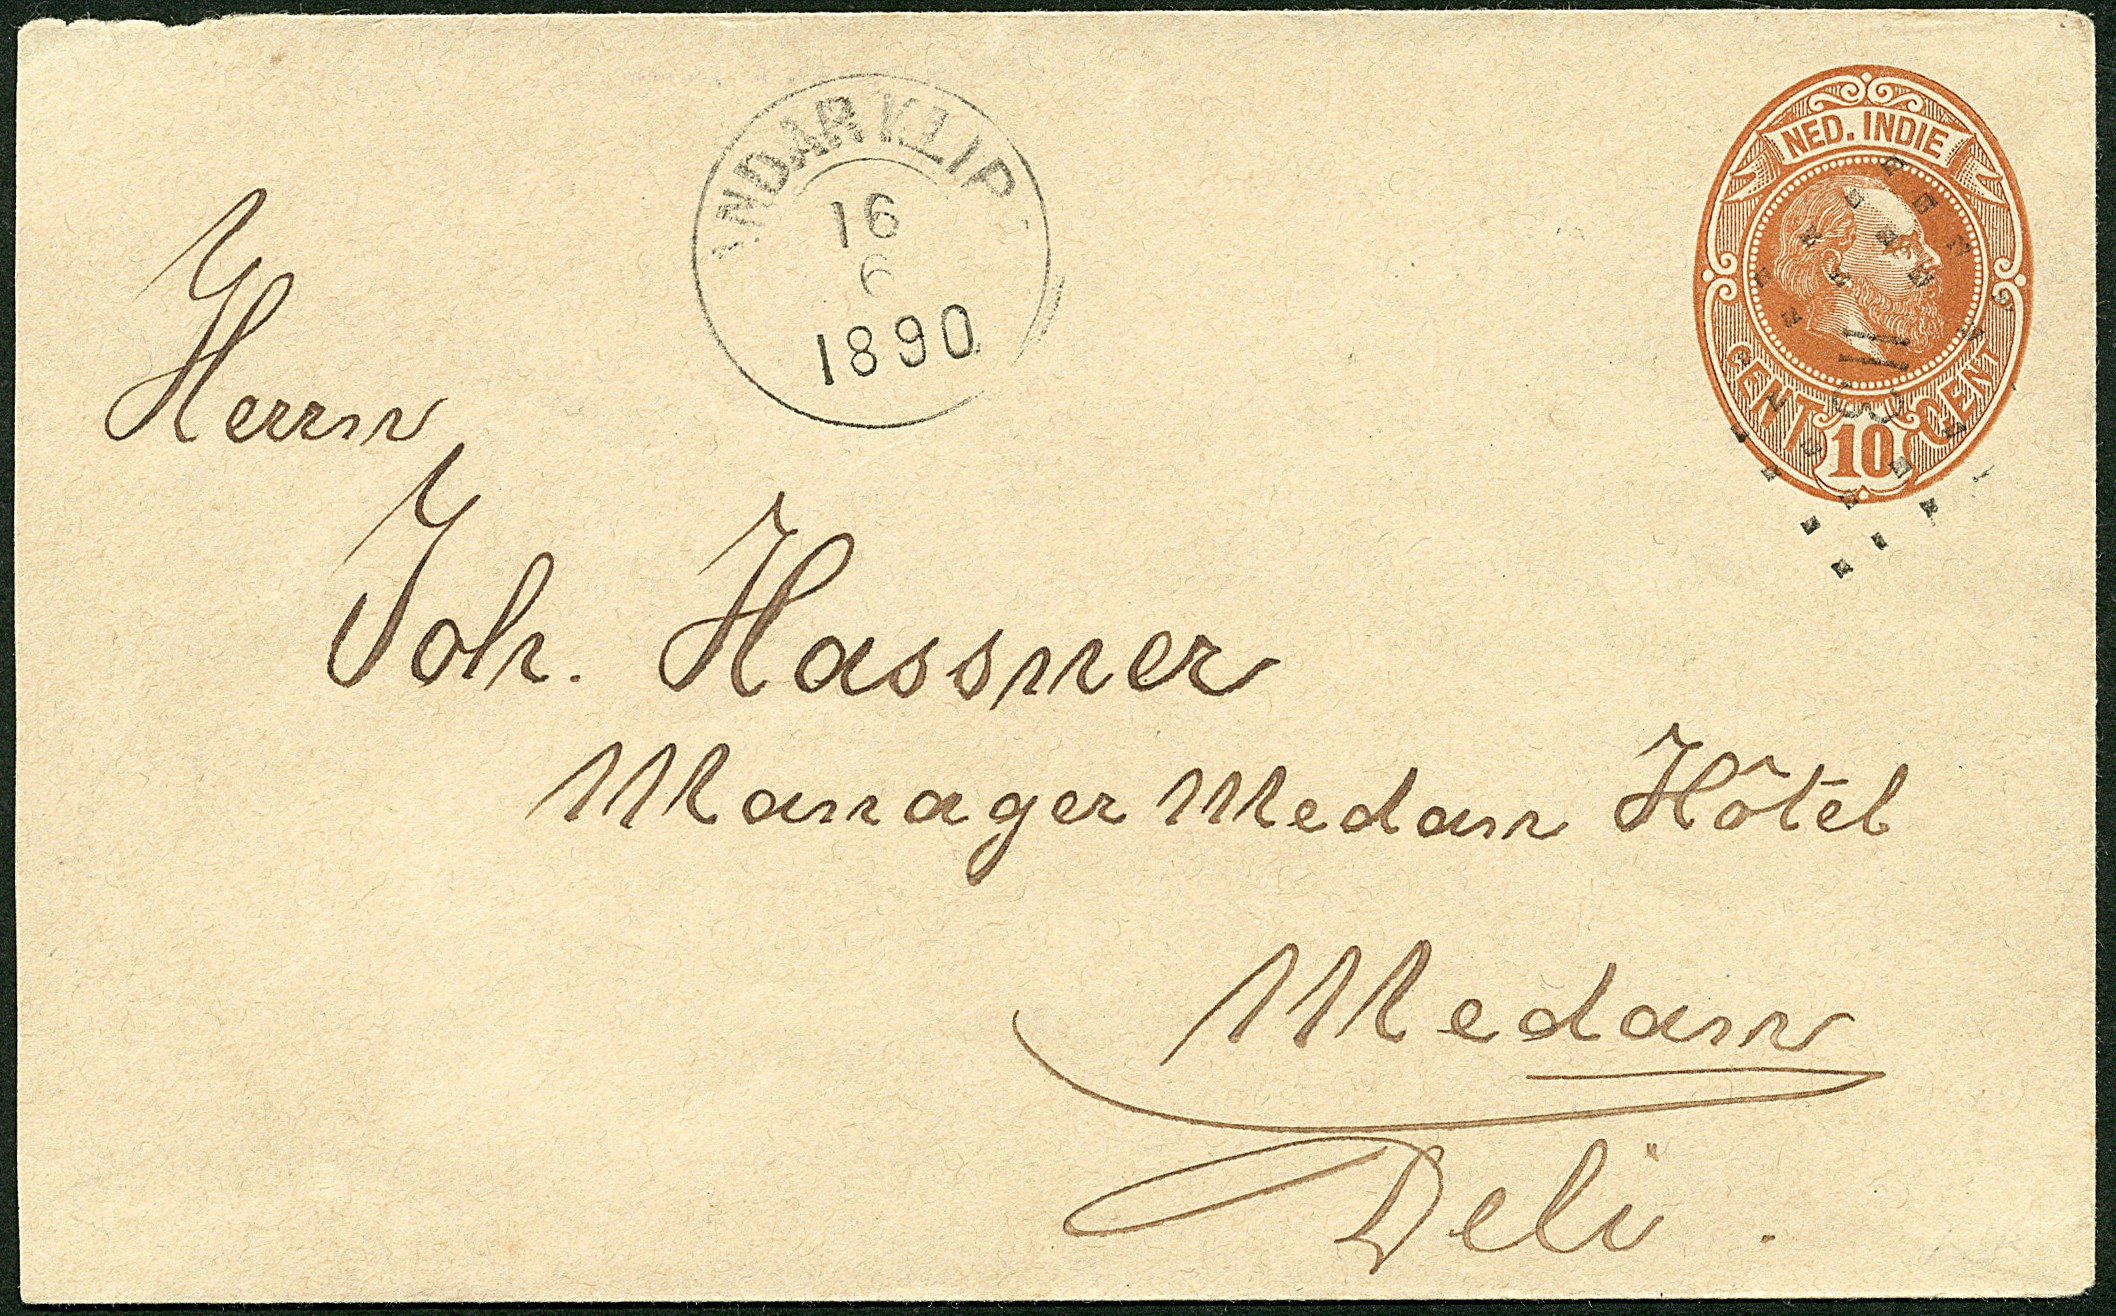 NED. INDIE
CENT 10 CENT
16
6
1890
Herrn
Joh. Hassner
Manager Medan Hôtel
Medan
Deli.